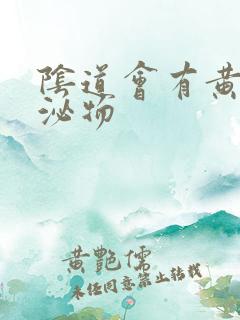 陰道會有黃
泌物
黃艷儒
未經同意禁止轉載